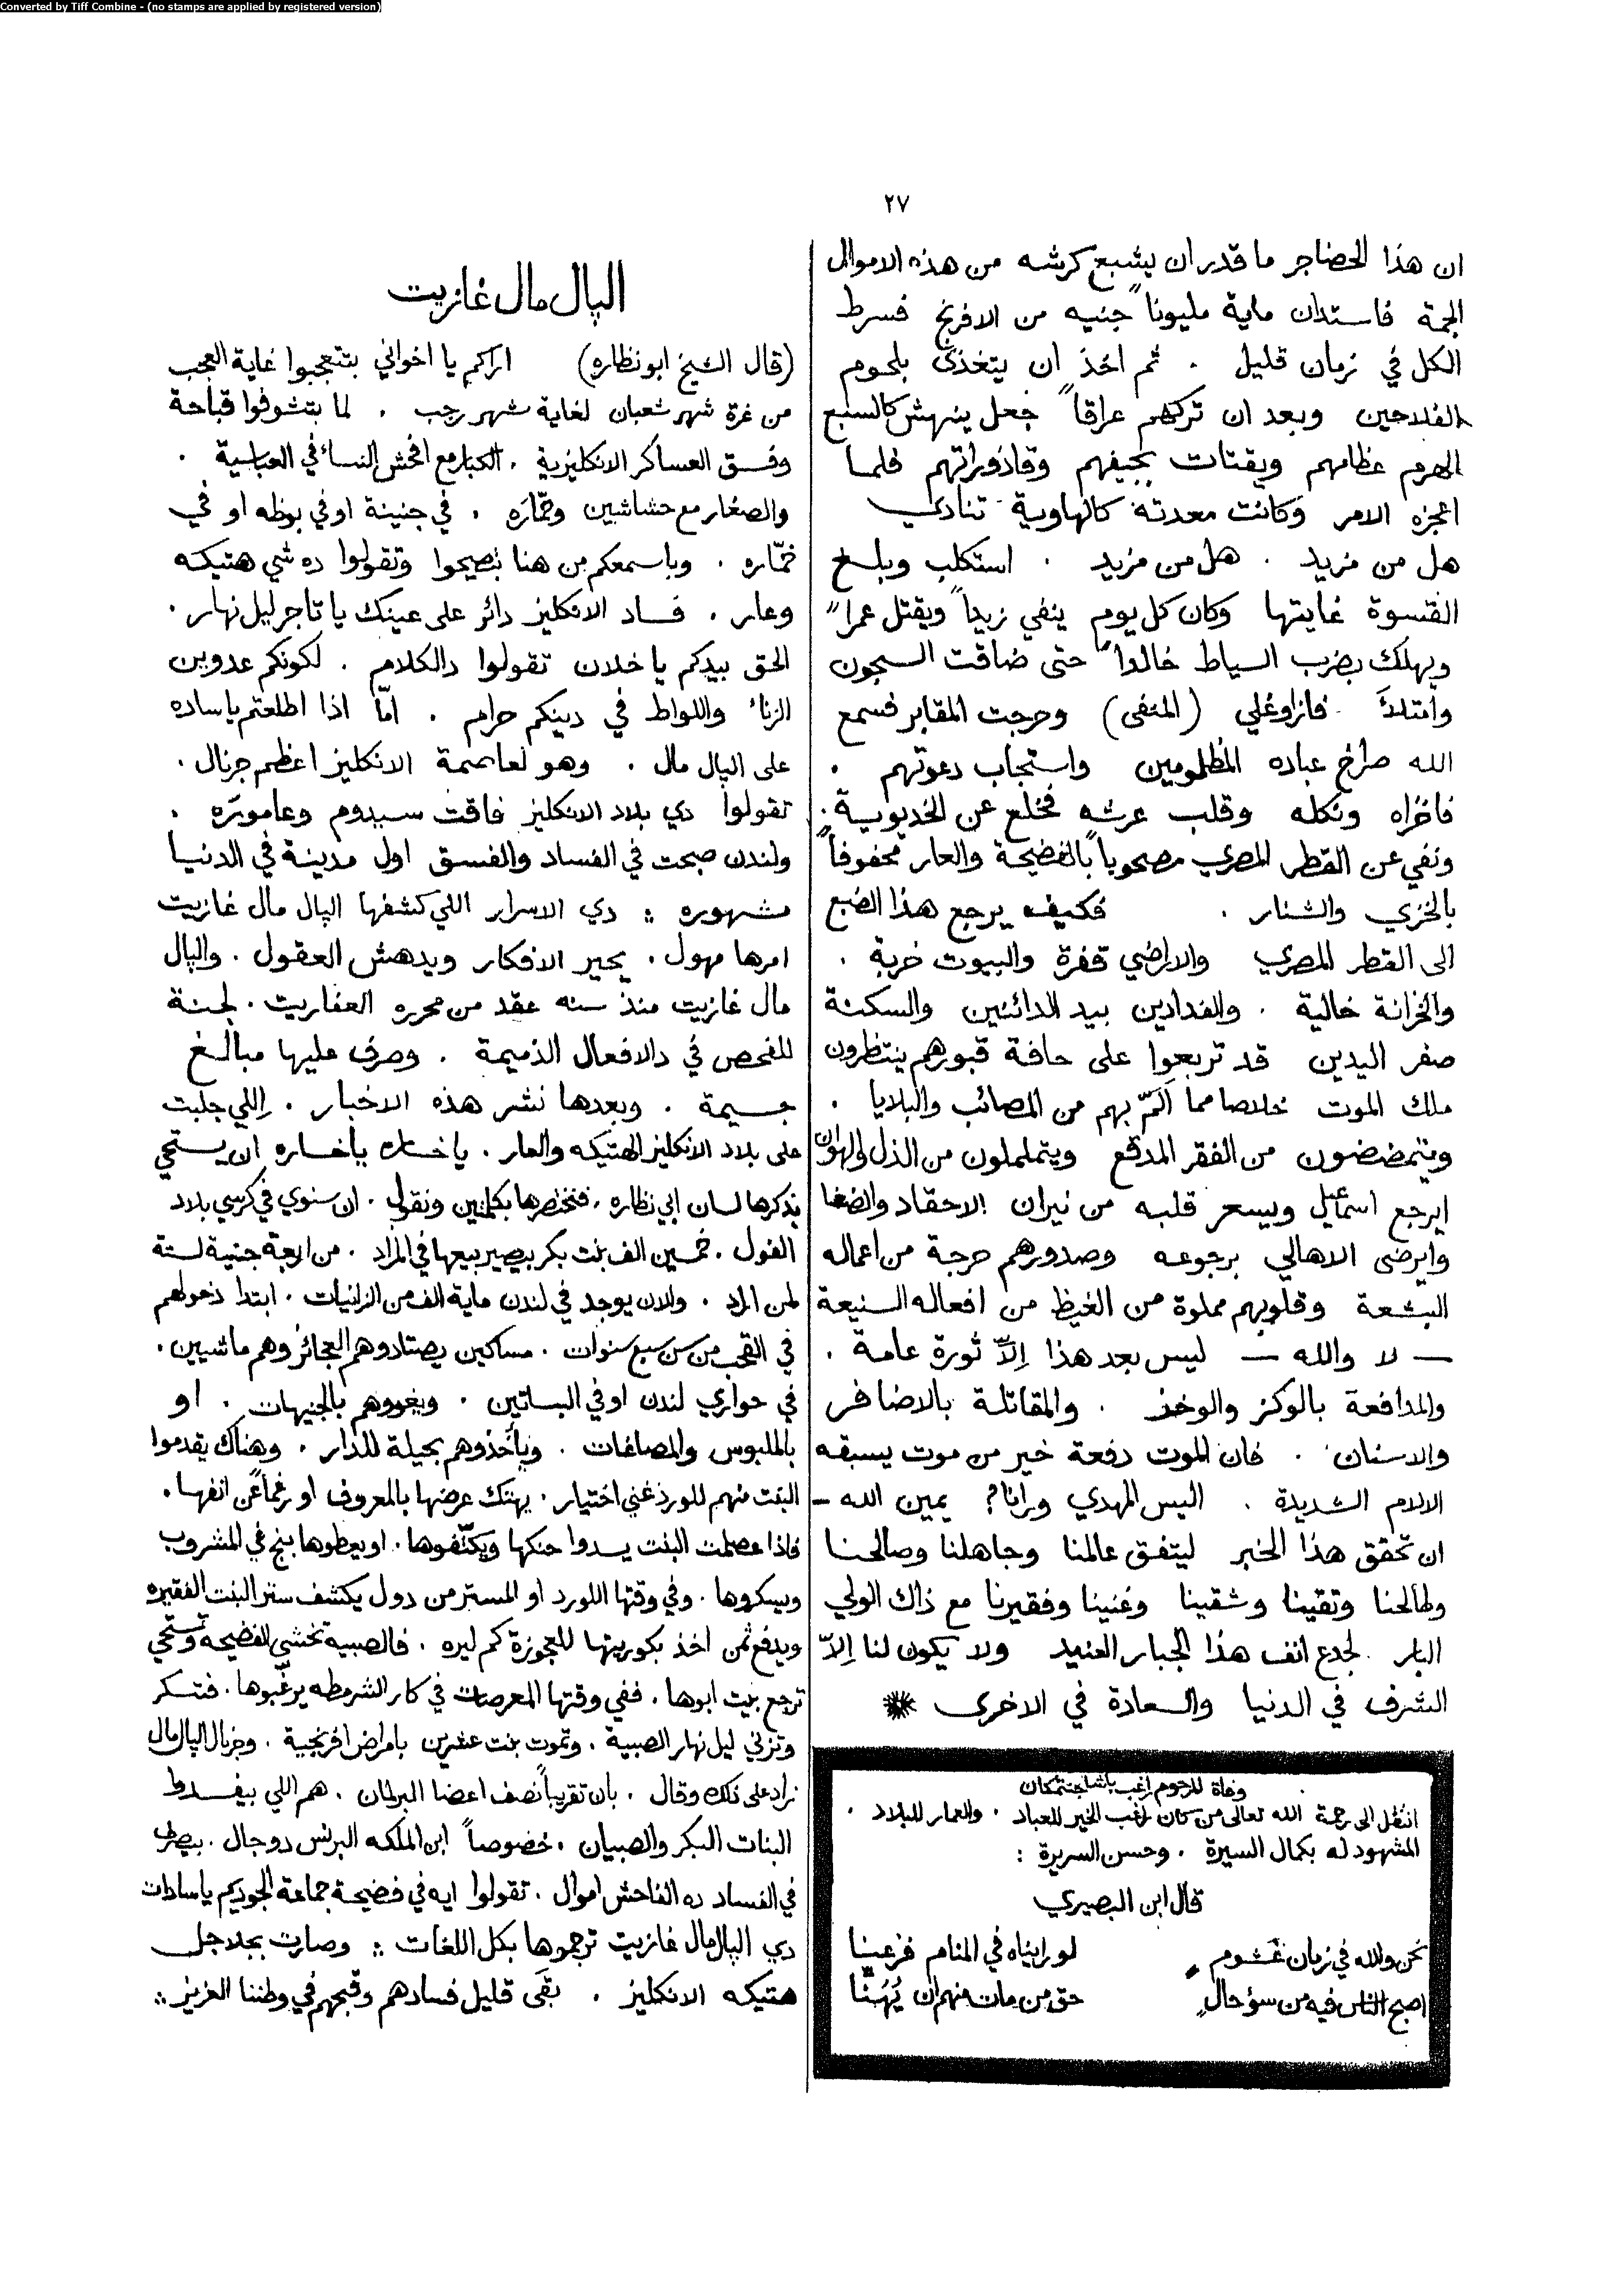 Converted by Tiff Combine - (no stamps are applied by registered version)
٢٧
ان هذا الحضاجر ما قدر ان يشبع كرشه من هذه الاموال
الجمة فاستدان ماية مليوناً جنيه من الافرنج فسرط
الكل في زمان قليل . ثم اخذ ان يتغذى بلحوم
الفلاحين وبعد ان تركهم عراقاً جعل ينهش كالسبع
الهرم عظامهم ويقتات بجيفهم وقاذوراتهم فلما
اعجزه الامر وكانت معدته كالهاوية تنادي
هل من مزيد . هل من مزيد . استكلب وبلغ
القسوة غايتها وكان كل يوم ينفي زيداً ويقتل عمراً
ويهلك بضرب السياط خالداً حتى ضاقت السجون
وامتلأ فازاوغلي (المنفى) وحرجت المقابر فسمع
الله صراخ عباده المظلومين واستجاب دعوتهم .
فاخزاه ونكله وقلب عرشه فخلع عن الخديوية .
ونفي عن القطر المصري مصحوباً بالفضيحة والعار محفوفاً
بالخزي والشنار . فكيف يرجع هذا الضبع
الى القطر المصري والاراضي قفرة والبيوت خربة .
والخزانة خالية . والفدادين بيد الدائنين والسكنة
صفر اليدين قد تربعوا على حافة قبورهم ينتظرون
ملك الموت خلاصا مما المّ بهم من المصائب والبلايا .
ويتمضضون من الفقر المدقع ويتململون من الذل والهوان
ايرجع اسماعيل ويسعر قلبه من نيران الاحقاد والضغا
وايرضى الاهالي برجوعه وصدورهم حرجة من اعماله
البشعة وقلوبهم مملوة من الغيظ من افعاله الشنيعة
— لا والله — ليس بعد هذا إلاّ ثورة عامة .
والمدافعة بالوكز والوخذ . والمقاتلة بالاضافر
والاسنان . فان الموت دفعة خير من موت يسبقه
الالام الشديدة . اليس المهدي ورانا؟ يمين الله —
ان تحقق هذا الخبر ليتفق عالمنا وجاهلنا وصالحنا
وطالحنا وتقينا وشقينا وغنينا وفقيرنا مع ذاك الولي
البار لجدع انف هذا الجبار العنيد ولا يكون لنا إلاّ
الشرف في الدنيا والسعادة في الاخرى
وفاة المرحوم راغب باشا جنتمكان
انتقل الى رحمة الله تعالى من كان راغب الخير للعباد . والعمار للبلاد .
المشهود له بكمال السيرة . وحسن السريرة :
قال ابن البصيري
نحن والله في زمان غشوم لو رايناه في المنام فزعينا
اصبح الناس فيه من سؤ حال حق من مات منهم ان يُهنّا
الپال مال غازيت
(قال الشيخ ابو نظاره) اراكم يا اخواني بتتعجبوا غاية العجب
من غرة شهر شعبان لغاية شهر رجب . لما بتشوفوا قباحة
وفسق العساكر الانكليزية . الكبار مع افحش النساء في العباسية .
والصغار مع حشاشين وحمّاره . في جنينة او في بوظه او في
خمّاره . وباسمعكم من هنا بتصيحوا وتقولوا ده شي هتيكه
وعار . فساد الانكليز دائر على عينك يا تاجر ليل نهار .
الحق بيدكم يا خلان تقولوا دالكلام . لكونكم عدوين
الزناء واللواط في دينكم حرام . امّا اذا اطلعتم ياساده
على الپال مال . وهو لعاصمة الانكليز اعظم جرنال .
تقولوا دي بلاد الانكليز فاقت سيدوم وعاموره .
ولندن صبحت في الفساد والفسق اول مدينة في الدنيا
مشهوره : دي الاسرار اللي كشفها الپال مال غازيت
امرها مهول . يحير الافكار ويدهش العقول . والپال
مال غازيت منذ سنه عقد من محرره العفاريت . لجنة
للفحص في دالافعال الذميمة . وصرف عليها مبالغ
جسيمة . وبعدها نشر هذه الاخبار . اللي جلبت
على بلاد الانكليز الهتيكه والعار . ياخساره ياخساره ان يستحي
يذكرها لسان ابي نظاره . فنختصرها بكلمتين ونقول . ان سنوي في كرسي بلاد
الغول . خمسين الف بنت بكر بيصير بيعها في المزاد . من اربعة جنية لستة
لمن اراد . والان يوجد في لندن ماية الف من الزانيات . ابتدا دخولهم
في القحب من سن سبع سنوات . مساكين يصتادوهم العجائز وهم ماشيين .
في حواري لندن او في البساتين . ويغووهم بالجنيهات . او
بالملبوس والمصاغات . وياخذوهم بحيلة للدار . وهناك يقدموا
البنت منهم للورد غني اختيار . يهتك عرضها بالمعروف او رغماً عن انفها .
فاذا عصلت البنت يسدوا حنكها ويكتّفوها . او يعطوها بنج في المشروب
ويسكروها . وفي وقتها اللورد او المستر من دول يكشف ستر البنت الفقيره
ويدفع ثمن اخذ بكوريتها للعجوزة كم ليره . فالصبيه تخشى الفضيحه وتستحي
ترجع بيت ابوها . ففي وقتها المعرصات في كار الشرمطه يرغّبوها . فتسكر
وتزني ليل نهار الصبية . وتموت بنت عشرين بامراض افرنجية . وجرنال الپال مال
زاد على ذلك وقال . بان تقريباً نصف اعضا البرلمان . هم اللي بيفسدوا
البنات البكر والصبيان . خصوصاً ابن الملكه البرنس دوجال . بيصرف
في الفساد ده الفاحش اموال . تقولوا ايه في فضيحة جماعة الجوديم ياسادات
دي الپال مال غازيت ترجموها بكل اللغات : وصارت بجلاجل
هتيكه الانكليز . بقى قليل فسادهم وقبحهم في وطننا العزيز :